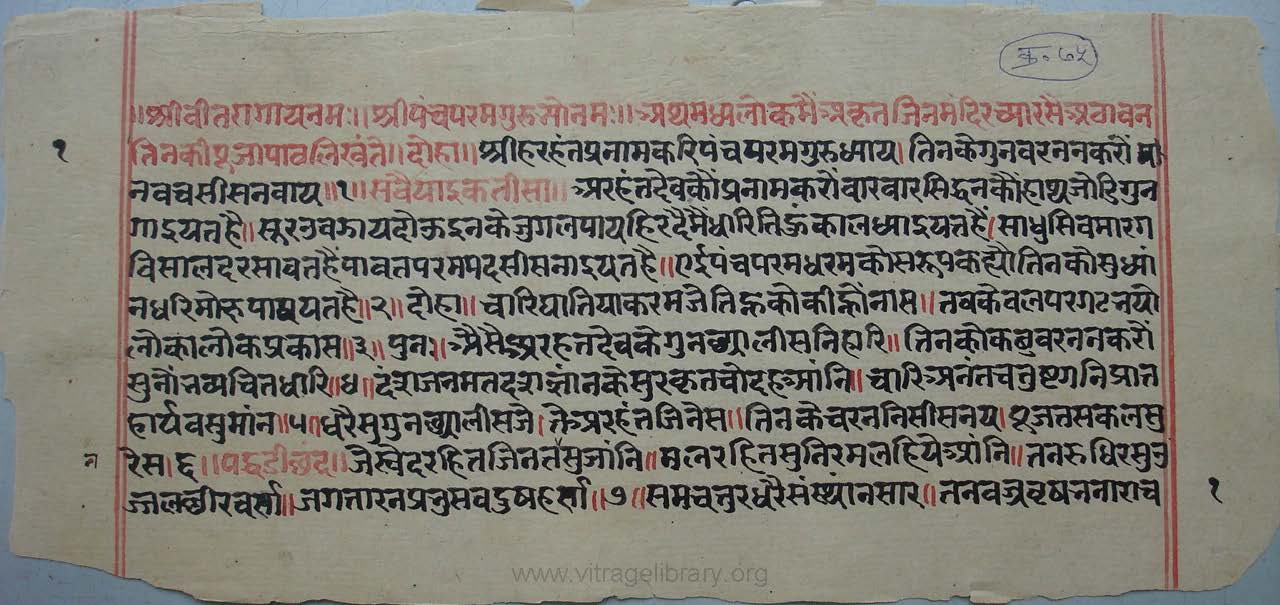 क्र. ७५
॥श्रीवीतरागायनमः॥श्रीपंचपरमगुरुभ्योनमः॥अथमध्यलोकमैंअकृतजिनमंदिरच्यारसैअठावन
१
तिनकीपूजापाठलिख्यंते॥दोहा॥श्रीहरहंतप्रनामकरिपंचपरमगुरुध्याय।तिनकेगुनवरननकरौं
नवचसीसनवाय॥१॥सवैयाइकतीसा॥अरहंतदेवकौंप्रनामकरौंवारवारसिद्धनकौंहाथजोरिगुन
गाइयतहै॥सूरउवझायदोऊइनकेजुगलपायहिरदैमैंधारितिहूंकालध्याइयतहैं।साधुसिवमारग
विसालदरसावतहैंपावतपरमपदसीसनाइयतहै॥एईपंचपरमधरमकौसरूपकह्यौतिनकौसुध्यां
नधरिमोरुपाइयतहै॥२॥दोहा॥चारिघातियाकरमजेतिह्नकोकीह्नोंनास॥तवकेवलपरगटनयो
लोकालोकप्रकास॥३॥पुनः॥अैसैअरहंतदेवकेगुनछ्यालीसनिहारि॥तिनकोकछुवरननकरौं
सुनौंनव्यचितधारि॥४॥दशजनमतदशज्ञांनकेसुरकृतचौदहआंनि॥चारिअनंतचतुष्टगनिप्रात
हार्यवसुमांन॥५॥धरैसुगुनछ्यालीसजे।तेअरहंतजिनेस॥तिनकेचरननिसीसनय।पूजतसकलसु
रेस।६॥पद्धडीछंद॥जैस्वेदरहितजिनतनसुजांनि॥मलरहितसुनिरमलहियैआंनि॥तनरुधिरसुउ
ज्जलछीरवर्त्ता॥जगतारनप्रभुसवदुषहर्त्ता॥७॥समचतुरधरैसंस्थानसार॥तनवज्रवृषननाराच
१
www.vitragelibrary.org